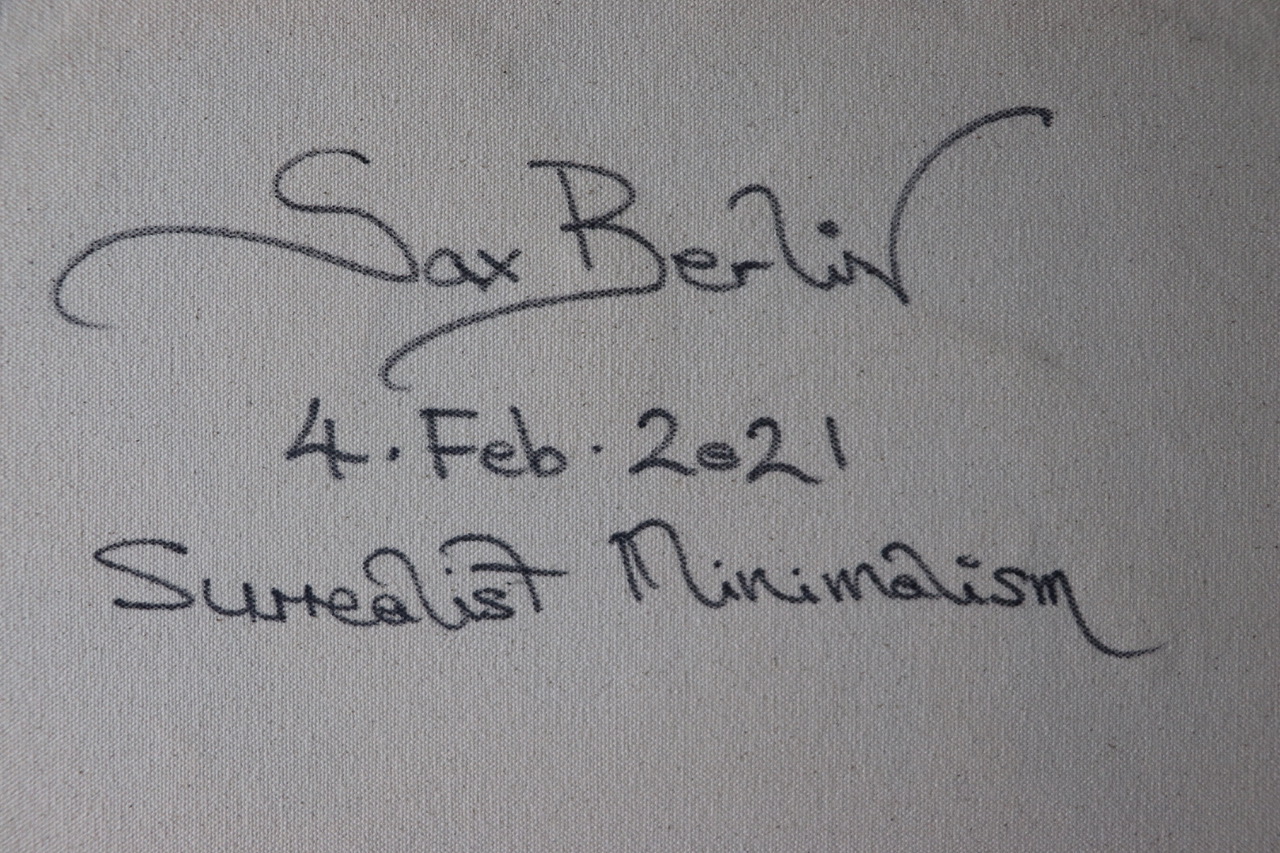 Sax Berlin
4. Feb. 2021
Surrealist Minimalism